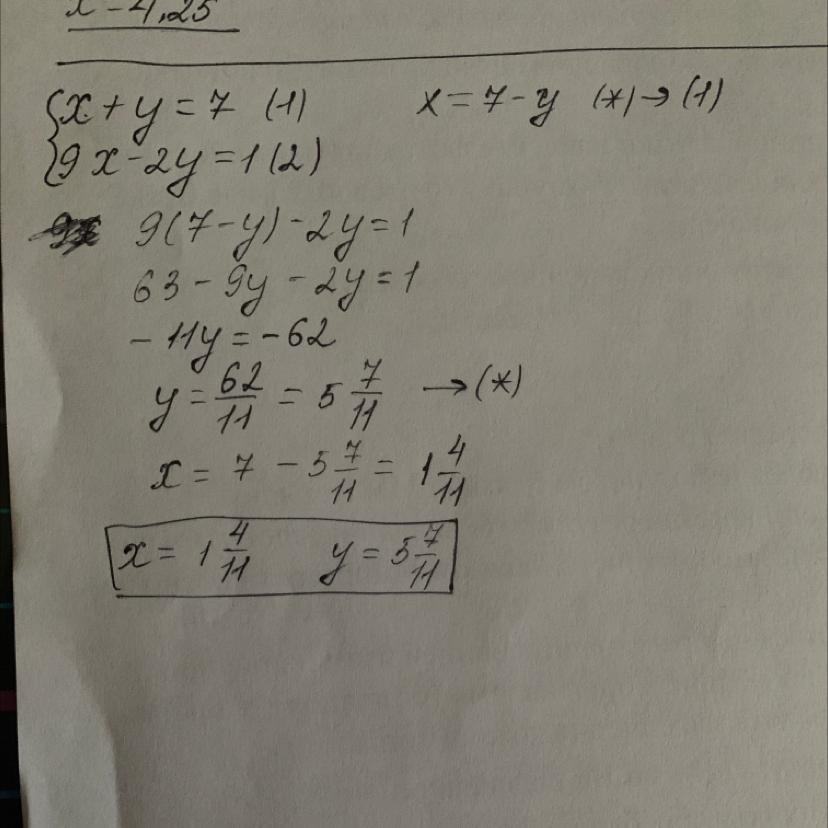 x - 4,25
{x + y = 7 (1) x = 7 - y (*) → (1)
{9x - 2y = 1 (2)
9(7 - y) - 2y = 1
63 - 9y - 2y = 1
- 11y = - 62
y = 62/11 = 5 7/11 → (*)
x = 7 - 5 7/11 = 1 4/11
x = 1 4/11 y = 5 7/11